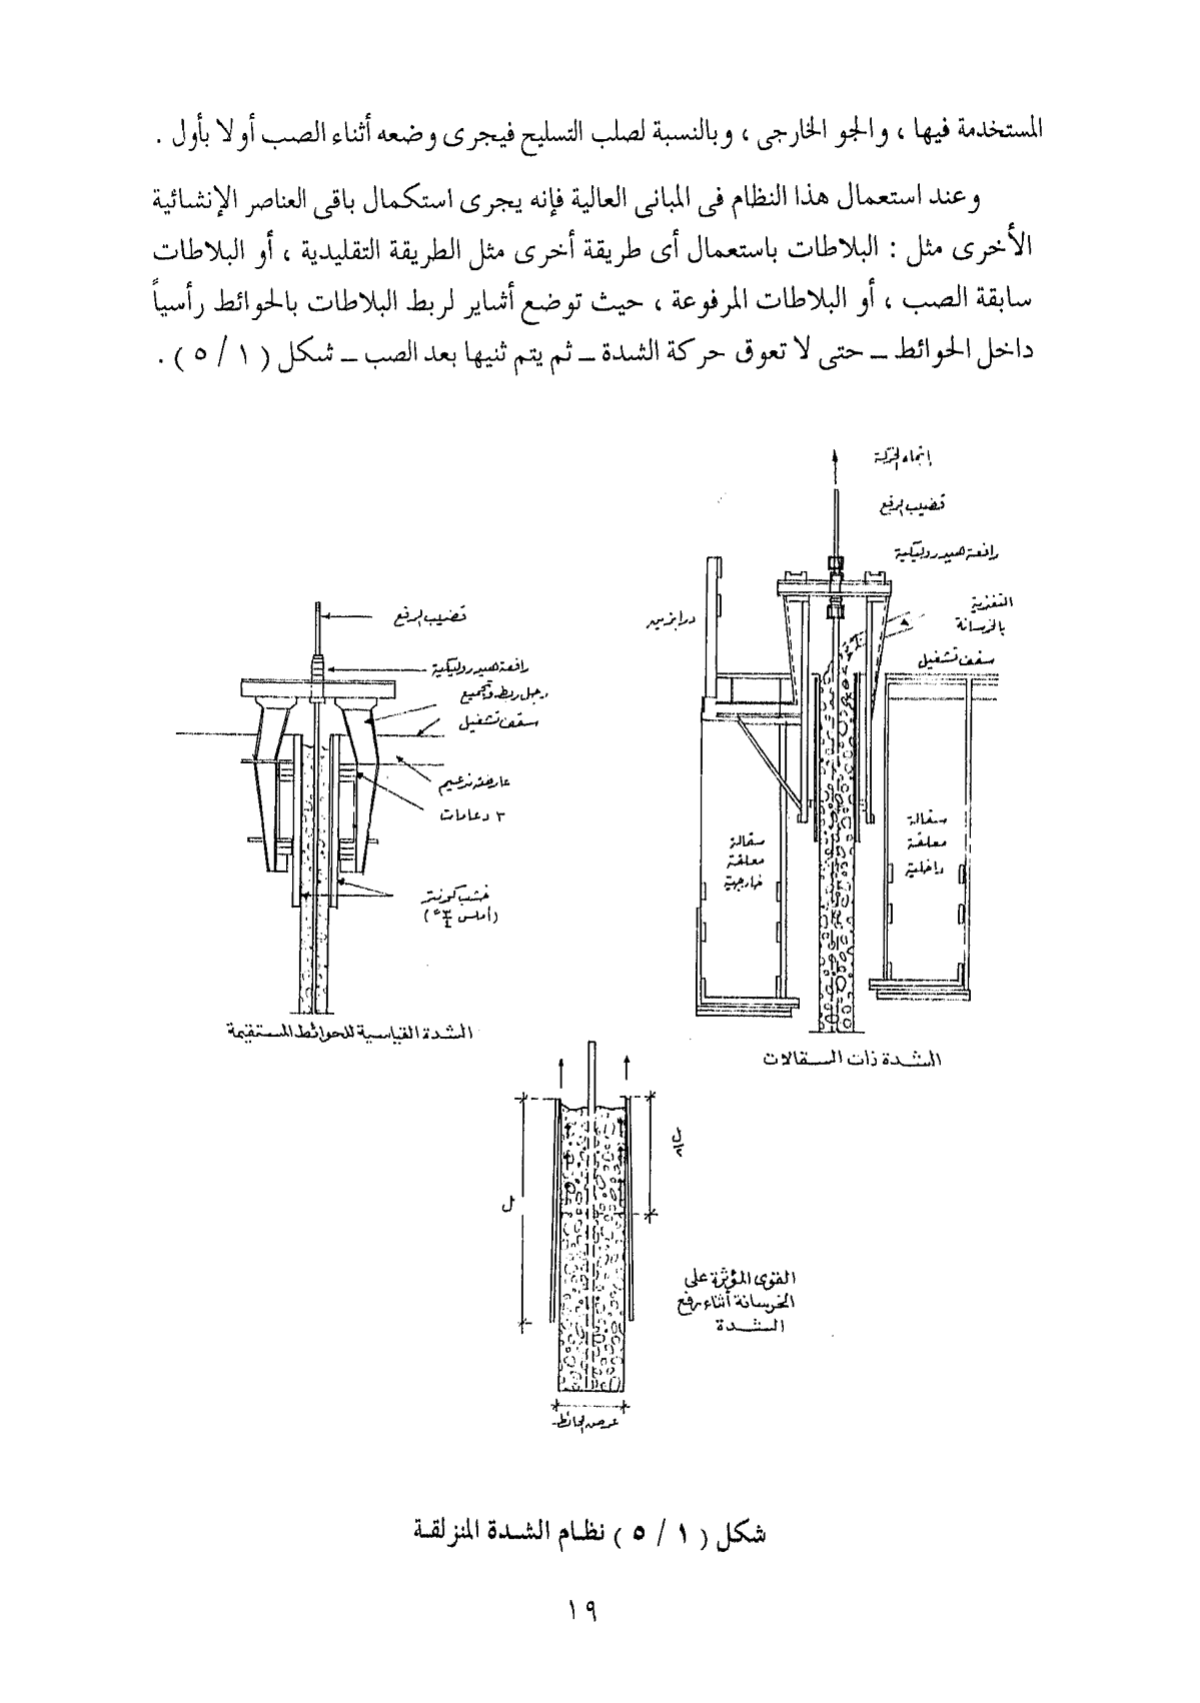 المستخدمة فيها ، والجو الخارجى ، وبالنسبة لصلب التسليح فيجرى وضعه أثناء الصب أولا بأول .
وعند استعمال هذا النظام فى المبانى العالية فإنه يجرى استكمال باقى العناصر الإنشائية
الأخرى مثل : البلاطات باستعمال أى طريقة أخرى مثل الطريقة التقليدية ، أو البلاطات
سابقة الصب ، أو البلاطات المرفوعة ، حيث توضع أشاير لربط البلاطات بالحوائط رأسياً
داخل الحوائط ــ حتى لا تعوق حركة الشدة ــ ثم يتم ثنيها بعد الصب ــ شكل ( ١ / ٥ ) .
إتجاه الحركة
قضيب الرفع
رافعة هيدروليكية
التغذية
بالخرسانة
سقف تشغيل
درابزين
سقالة
معلقة
خارجية
سقالة
معلقة
داخلية
الشدة ذات السقالات
قضيب الرفع
رافعة هيدروليكية
رجل ربط وتجميع
سقف تشغيل
عارضة تدعيم
٣ دعامات
خشب كونتر
(أملس ٣/٤ ")
الشدة القياسية للحوائط المستقيمة
ل
القوى المؤثرة على
الخرسانة أثناء رفع
الشدة
عرض الحائط
شكل ( ١ / ٥ ) نظام الشدة المنزلقة
١٩